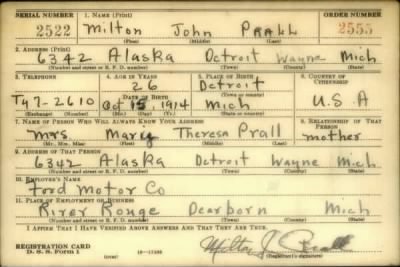 SERIAL NUMBER 1. NAME (Print) ORDER NUMBER
2522 Milton John PRALL 2555
(First) (Middle) (Last)
2. ADDRESS (Print)
6342 Alaska Detroit Wayne Mich
(Number and street or R. F. D. number) (Town) (County) (State)
3. TELEPHONE 4. AGE IN YEARS 5. PLACE OF BIRTH 6. COUNTRY OF CITIZENSHIP
26 Detroit
DATE OF BIRTH (Town or county)
Ty7-2610 Oct 15, 1914 Mich U.S.A
(Exchange) (Number) (Mo.) (Day) (Yr.) (State or country)
7. NAME OF PERSON WHO WILL ALWAYS KNOW YOUR ADDRESS 8. RELATIONSHIP OF THAT PERSON
Mrs. Mary Theresa Prall mother
(Mr., Mrs., Miss) (First) (Middle) (Last)
9. ADDRESS OF THAT PERSON
6342 Alaska Detroit Wayne Mich
(Number and street or R. F. D. number) (Town) (County) (State)
10. EMPLOYER'S NAME
Ford Motor Co
11. PLACE OF EMPLOYMENT OR BUSINESS
River Rouge Dearborn Mich
(Number and street or R. F. D. number) (Town) (County) (State)
I AFFIRM THAT I HAVE VERIFIED ABOVE ANSWERS AND THAT THEY ARE TRUE.
REGISTRATION CARD
D. S. S. Form 1 Milton J. Prall
(Registrant's signature)